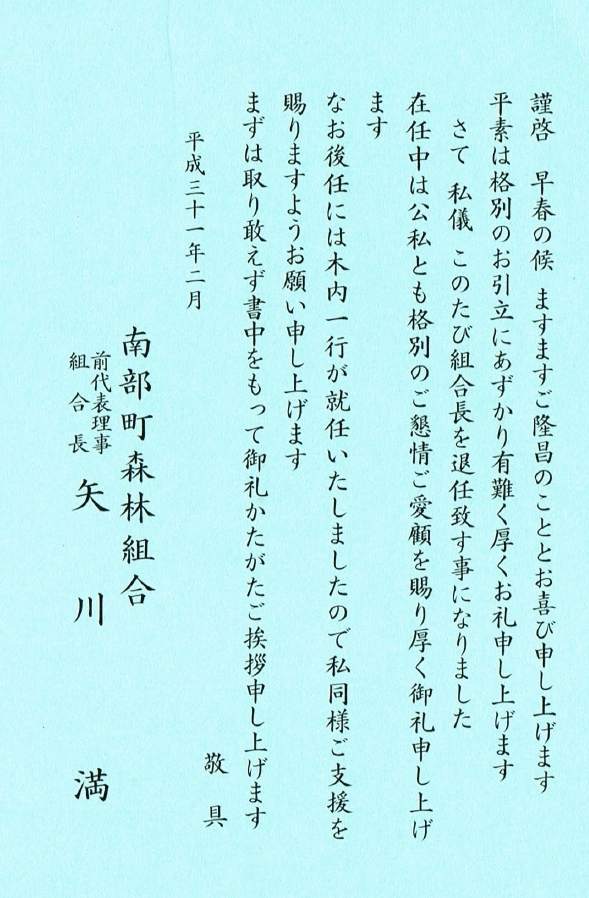 謹啓　早春の候　ますますご隆昌のこととお喜び申し上げます
平素は格別のお引立にあずかり有難く厚くお礼申し上げます
さて　私儀　このたび組合長を退任致す事になりました
在任中は公私とも格別のご懇情ご愛顧を賜り厚く御礼申し上げ
ます
なお後任には木内一行が就任いたしましたので私同様ご支援を
賜りますようお願い申し上げます
まずは取り敢えず書中をもって御礼かたがたご挨拶申し上げます
敬具
平成三十一年二月
南部町森林組合
前代表理事
組合長
矢川　満